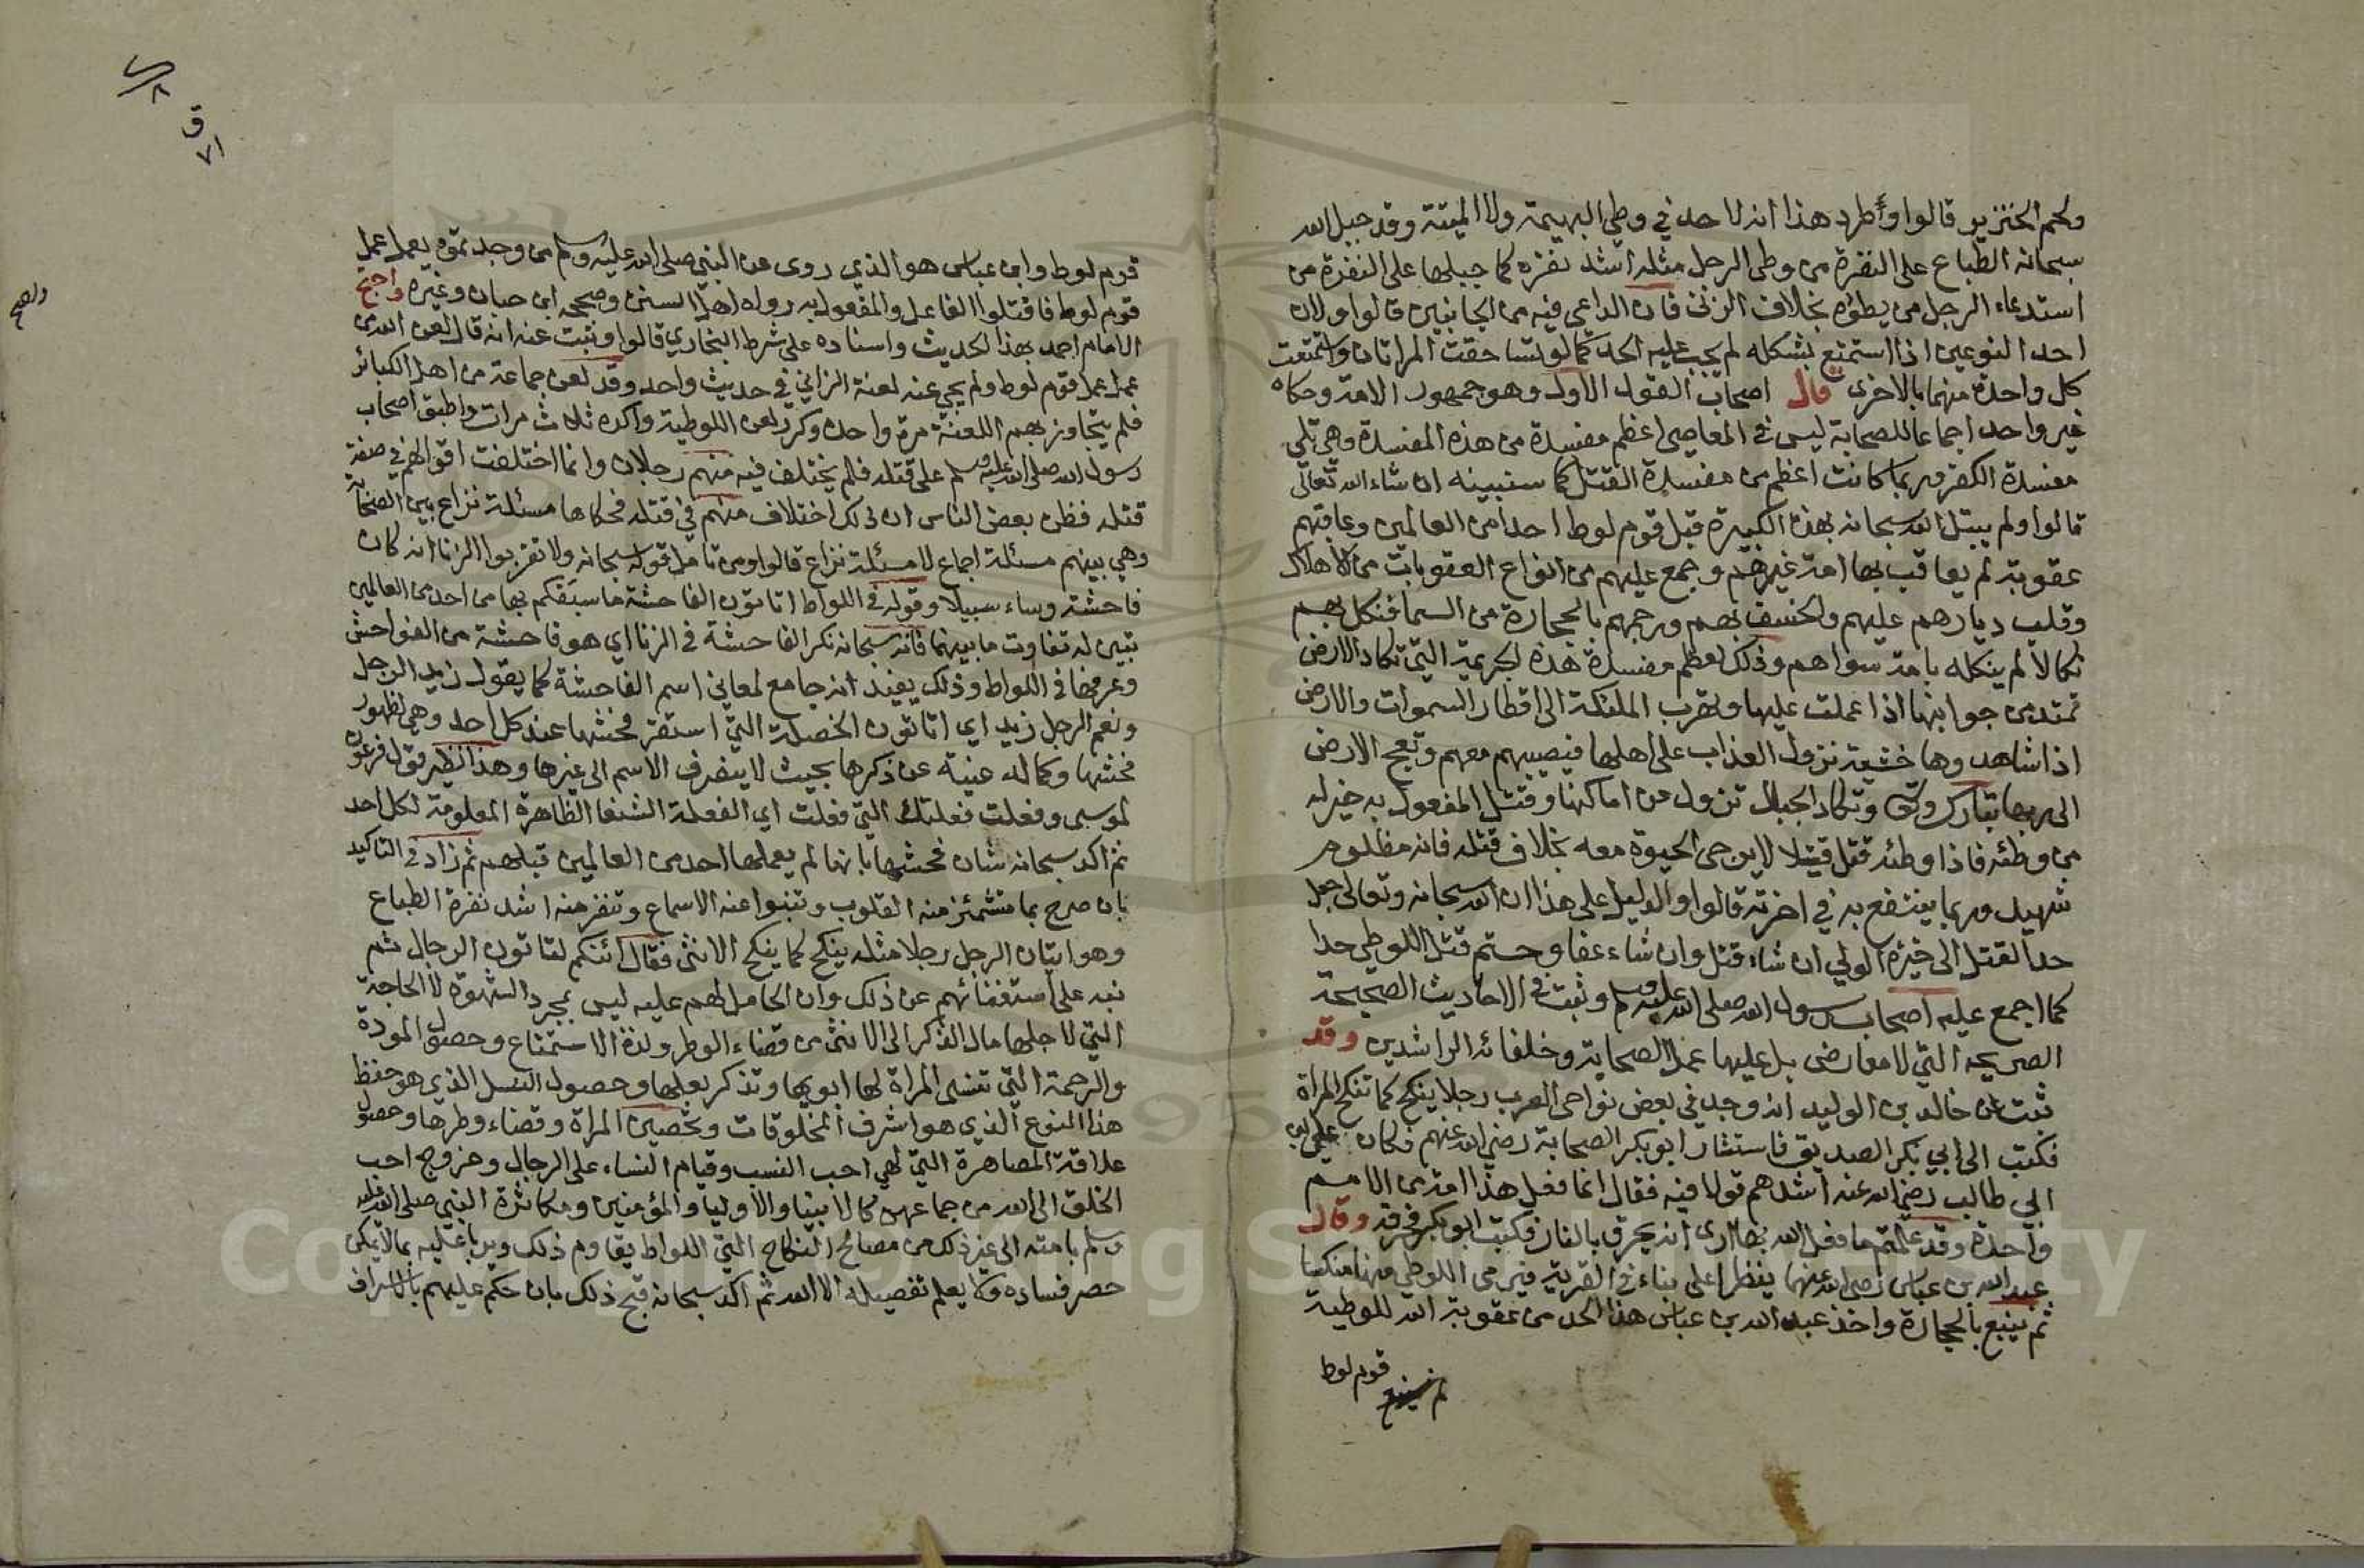 ولحم الخنزير قالوا وأطرد هذا انه لا حد في وطي البهيمة ولا الميتة وقد جبل الله
سبحانه الطباع على النفرة من وطى الرجل مثله اشد نفزه كما جبلها على النفرة من
استدعاء الرجل من يطؤه بخلاف الزنى فان الداعى فيه من الجانبين قالوا ولان
احد النوعين اذا استمتع بشكله لم يجب عليه الحد كما لو تساحقت المراتان واستمتعت
كل واحدة منهما بالاخرى قال اصحاب القول الاول وهو جمهور الامة وحكاه
غير واحد اجماعا للصحابة ليس في المعاصي اعظم مفسدة من هذه المفسدة وهي تلي
مفسدة الكفر وربما كانت اعظم من مفسدة القتل كما سنبينه ان شاء الله تعالى
قالوا ولم يبتل الله سبحانه بهذه الكبيرة قبل قوم لوط احدا من العالمين وعاقبهم
عقوبة لم يعاقب بها امة غيرهم وجمع عليهم من انواع العقوبات من الاهلاك
وقلب ديارهم عليهم والخسف بهم ورجمهم بالحجارة من السما فنكل بهم
نكالا لم ينكله بامة سواهم وذلك لعظم مفسدة هذه الجريمة التي تكاد الارض
تمتد من جوانبها اذا عملت عليها وتهرب الملئكة الى اقطار السموات والارض
اذا شاهدوها خشية نزول العذاب على اهلها فيصيبهم معهم وتعج الارض
الى ربها تبارك وتعالى وتكاد الجبال تزول عن اماكنها وقتل المفعول به خير له
من وطئه فاذا وطئه قتل قتيلا لا يرجى الحيوة معه بخلاف قتله فانه مظلوم
شهيد وربما ينتفع به في اخرته قالوا والدليل على هذا ان الله سبحانه وتعالى جعل
حد القتل الى خيرة الولي ان شاء قتل وان شاء عفا وحتم قتل اللوطي حدا
كما اجمع عليه اصحاب رسول الله صلى الله عليه وسلم وثبت في الاحاديث الصحيحة
الصريحه التي لا معارض بل عليها عمل الصحابة وخلفائه الراشدين وقد
ثبت عن خالد بن الوليد انه وجد في بعض نواحى العرب رجلا ينكح كما تنكح المرأة
فكتب الى ابي بكر الصديق فاستشار ابو بكر الصحابة رضي الله عنهم فكان علي بن
ابي طالب رضي الله عنه اشدهم قولا فيه فقال انما فعل هذا امة من الامم
واحدة وقد علمتم ما فعل الله بها ارى انه يحرق بالنار فكتب ابو بكر فحرقه وقال
عبد الله بن عباس رضى الله عنهما ينظر اعلى بناء في القرية فيرمى اللوطي منها منكبا
ثم يتبع بالحجارة واخذ عبد الله بن عباس هذا الحد من عقوبة الله للوطية
قوم لوط
قوم لوط وابن عباس هو الذي روى عن النبي صلى الله عليه وسلم من وجدتموه يعمل عمل
قوم لوط فاقتلوا الفاعل والمفعول به رواه اهل السنن وصححه ابن حبان وغيره واحتج
الامام احمد بهذا الحديث واسناده على شرط البخاري قالوا وثبت عنه انه قال لعن الله من
عمل عمل قوم لوط ولم يجي عنه لعنة الزاني في حديث واحد وقد لعن جماعة من اهل الكبائر
فلم يتجاوز بهم اللعنة مرة واحدة وكرر لعن اللوطية واكده ثلاث مرات واطبق اصحاب
رسول الله صلى الله عليه وسلم على قتله فلم يختلف فيه منهم رجلان وانما اختلفت اقوالهم في صفة
قتله فظن بعض الناس ان ذلك اختلاف منهم في قتله فحكاها مسئلة نزاع بين الصحابة
وهي بينهم مسئلة اجماع لا مسئلة نزاع قالوا ومن تامل قوله سبحانه ولا تقربوا الزنا انه كان
فاحشة وساء سبيلا وقوله في اللواط اتاتون الفاحشة ما سبقكم بها من احد من العالمين
تبين له تفاوت ما بينهما فانه سبحانه نكر الفاحشة في الزنا اي هو فاحشة من الفواحش
وعرفها في اللواط وذلك يفيد انه جامع لمعاني اسم الفاحشة كما يقول زيد الرجل
ونعم الرجل زيد اي اتاتون الخصلة التي استقر فحشها عند كل احد وهي لظهور
فحشها وكماله غنية عن ذكرها بحيث لا ينصرف الاسم الى غيرها وهذا نظير قول فرعون
لموسى وفعلت فعلتك التي فعلت اي الفعلة الشنعا الظاهرة المعلومة لكل احد
ثم اكد سبحانه شان فحشها بانها لم يعملها احد من العالمين قبلهم ثم زاد في التاكيد
بان صرح بما تشمئز منه القلوب وتنبوا عنه الاسماع وتنفر منه اشد نفرة الطباع
وهو اتيان الرجل رجلا مثله ينكح كما ينكح الانثى فقال ائنكم لتاتون الرجال ثم
نبه على استغنائهم عن ذلك وان الحامل لهم عليه ليس بمجرد الشهوة لا الحاجة
التي لاجلها مال الذكر الى الانثى من قضاء الوطر ولذة الاستمتاع وحصول المودة
والرحمة التي تنسى المراة لها ابويها وتذكر بعلها وحصول النسل الذي هو حفظ
هذا النوع الذي هو اشرف المخلوقات وتحصين المراة وقضاء وطرها وحصول
علاقة المصاهرة التي هي احب النسب وقيام النساء على الرجال وخروج احب
الخلق الى الله من جماعهن كالانبيا والاوليا والمؤمنين ومكاثرة النبي صلى الله عليه
وسلم بامته الى غير ذلك من مصالح النكاح التي اللواط يقاوم ذلك ويربا عليه بما لا يمكن
حصر فساده ولا يعلم تفصيله الا الله ثم اكد سبحانه قبح ذلك بان حكم عليهم بالاسراف
ق
٧١
Copyright © King Saud University